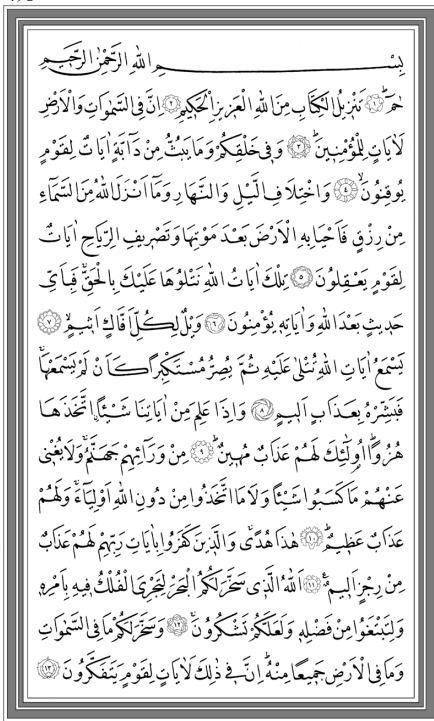 بِسْمِ اللّٰهِ الرَّحْمٰنِ الرَّحٖيمِ
حٰمٓ ﴿١﴾ تَنْزٖيلُ الْكِتَابِ مِنَ اللّٰهِ الْعَزٖيزِ الْحَكٖيمِ ﴿٢﴾ اِنَّ فِي السَّمٰوَاتِ وَالْاَرْضِ
لَاٰيَاتٍ لِلْمُؤْمِنٖينَ ﴿٣﴾ وَفٖي خَلْقِكُمْ وَمَا يَبُثُّ مِنْ دَٓابَّةٍ اٰيَاتٌ لِقَوْمٍ
يُوقِنُونَ ﴿٤﴾ وَاخْتِلَافِ الَّيْلِ وَالنَّهَارِ وَمَٓا اَنْزَلَ اللّٰهُ مِنَ السَّمَٓاءِ
مِنْ رِزْقٍ فَاَحْيَا بِهِ الْاَرْضَ بَعْدَ مَوْتِهَا وَتَصْرٖيفِ الرِّيَاحِ اٰيَاتٌ
لِقَوْمٍ يَعْقِلُونَ ﴿٥﴾ تِلْكَ اٰيَاتُ اللّٰهِ نَتْلُوهَا عَلَيْكَ بِالْحَقِّ فَبِاَيِّ
حَدٖيثٍ بَعْدَ اللّٰهِ وَاٰيَاتِهٖ يُؤْمِنُونَ ﴿٦﴾ وَيْلٌ لِكُلِّ اَفَّاكٍ اَثٖيمٍ ﴿٧﴾
يَسْمَعُ اٰيَاتِ اللّٰهِ تُتْلٰى عَلَيْهِ ثُمَّ يُصِرُّ مُسْتَكْبِرًا كَاَنْ لَمْ يَسْمَعْهَا
فَبَشِّرْهُ بِعَذَابٍ اَلٖيمٍ ﴿٨﴾ وَاِذَا عَلِمَ مِنْ اٰيَاتِنَا شَيْـًٔا اتَّخَذَهَا
هُزُوًا اُولٰٓئِكَ لَهُمْ عَذَابٌ مُهٖينٌ ﴿٩﴾ مِنْ وَرَٓائِهِمْ جَهَنَّمُ وَلَا يُغْنٖي
عَنْهُمْ مَا كَسَبُوا شَيْـًٔا وَلَا مَا اتَّخَذُوا مِنْ دُونِ اللّٰهِ اَوْلِيَٓاءَ وَلَهُمْ
عَذَابٌ عَظٖيمٌ ﴿١٠﴾ هٰذَا هُدًى وَالَّذٖينَ كَفَرُوا بِاٰيَاتِ رَبِّهِمْ لَهُمْ عَذَابٌ
مِنْ رِجْزٍ اَلٖيمٌ ﴿١١﴾ اَللّٰهُ الَّذٖي سَخَّرَ لَكُمُ الْبَحْرَ لِتَجْرِيَ الْفُلْكُ فٖيهِ بِاَمْرِهٖ
وَلِتَبْتَغُوا مِنْ فَضْلِهٖ وَلَعَلَّكُمْ تَشْكُرُونَ ﴿١٢﴾ وَسَخَّرَ لَكُمْ مَا فِي السَّمٰوَاتِ
وَمَا فِي الْاَرْضِ جَمٖيعًا مِنْهُ اِنَّ فٖي ذٰلِكَ لَاٰيَاتٍ لِقَوْمٍ يَتَفَكَّرُونَ ﴿١٣﴾